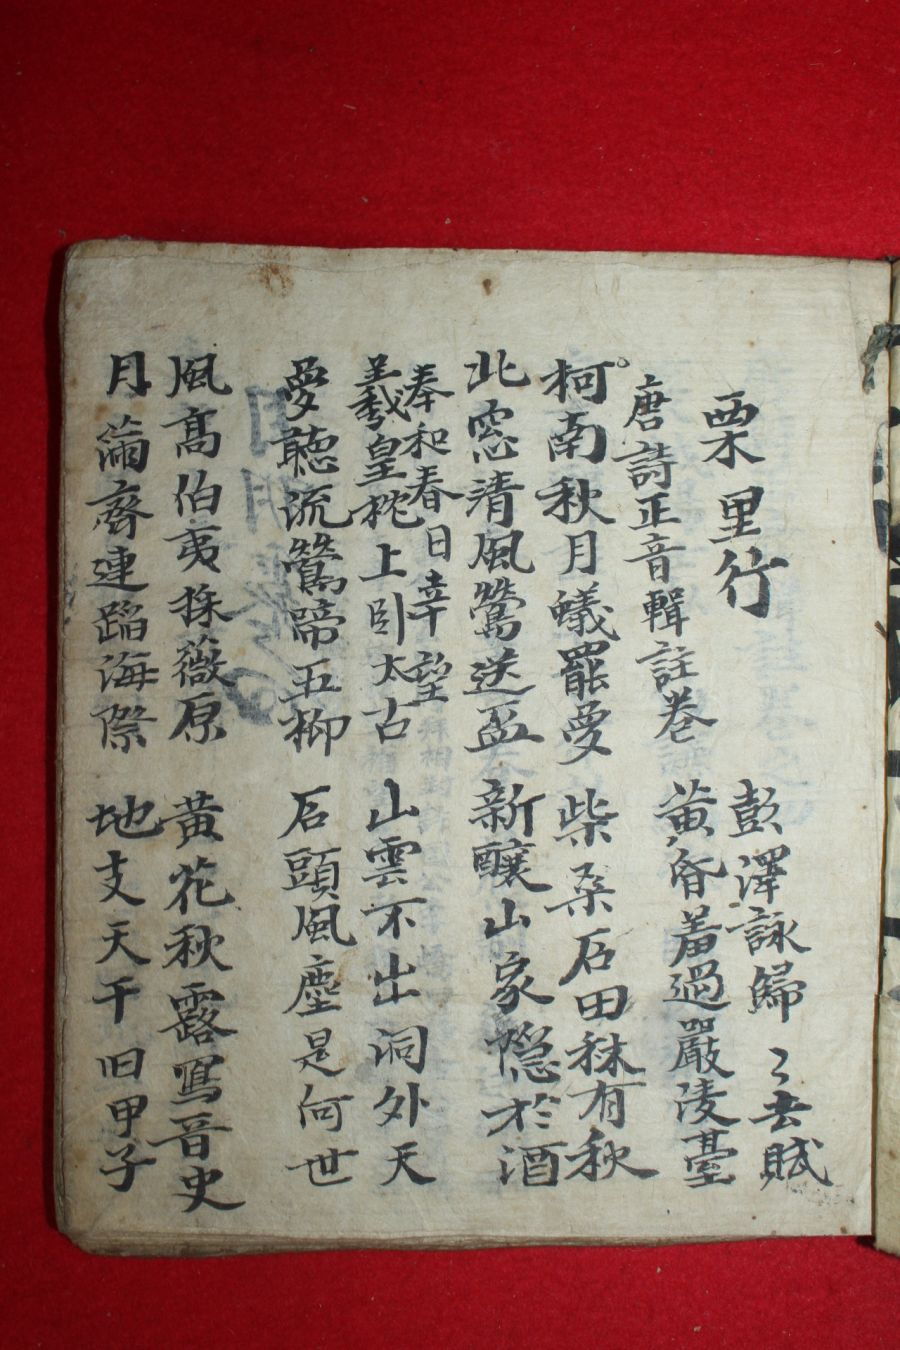 栗里行
彭澤詠歸〻去賦
唐詩正音輯註卷
黃昏羞過嚴陵臺
柯南秋月蟻罷夢 柴桑石田秫有秋
北窓清風鶯送盃 新釀山家隱於酒
奉和春日幸望
羲皇枕上卧太古 山雲不出洞外天
夢聽流鶯啼五柳 石頭風塵是何世
風高伯夷採薇原 黃花秋露寫晉史
月滿齊連蹈海際 地支天干旧甲子